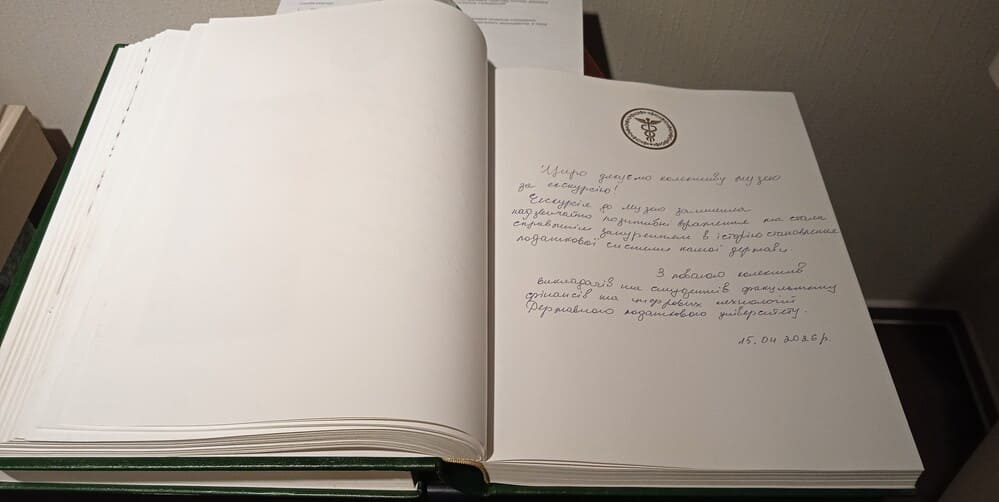 Щиро дякуємо колективу музею
за екскурсію!
Екскурсія до музею залишила
надзвичайно позитивні враження та стала
справжнім зануренням в історію становлення
податкової системи нашої держави.
З повагою колектив
викладачів та студентів факультету
фінансів та цифрових технологій
Державного податкового університету.
15.04 2026 р.